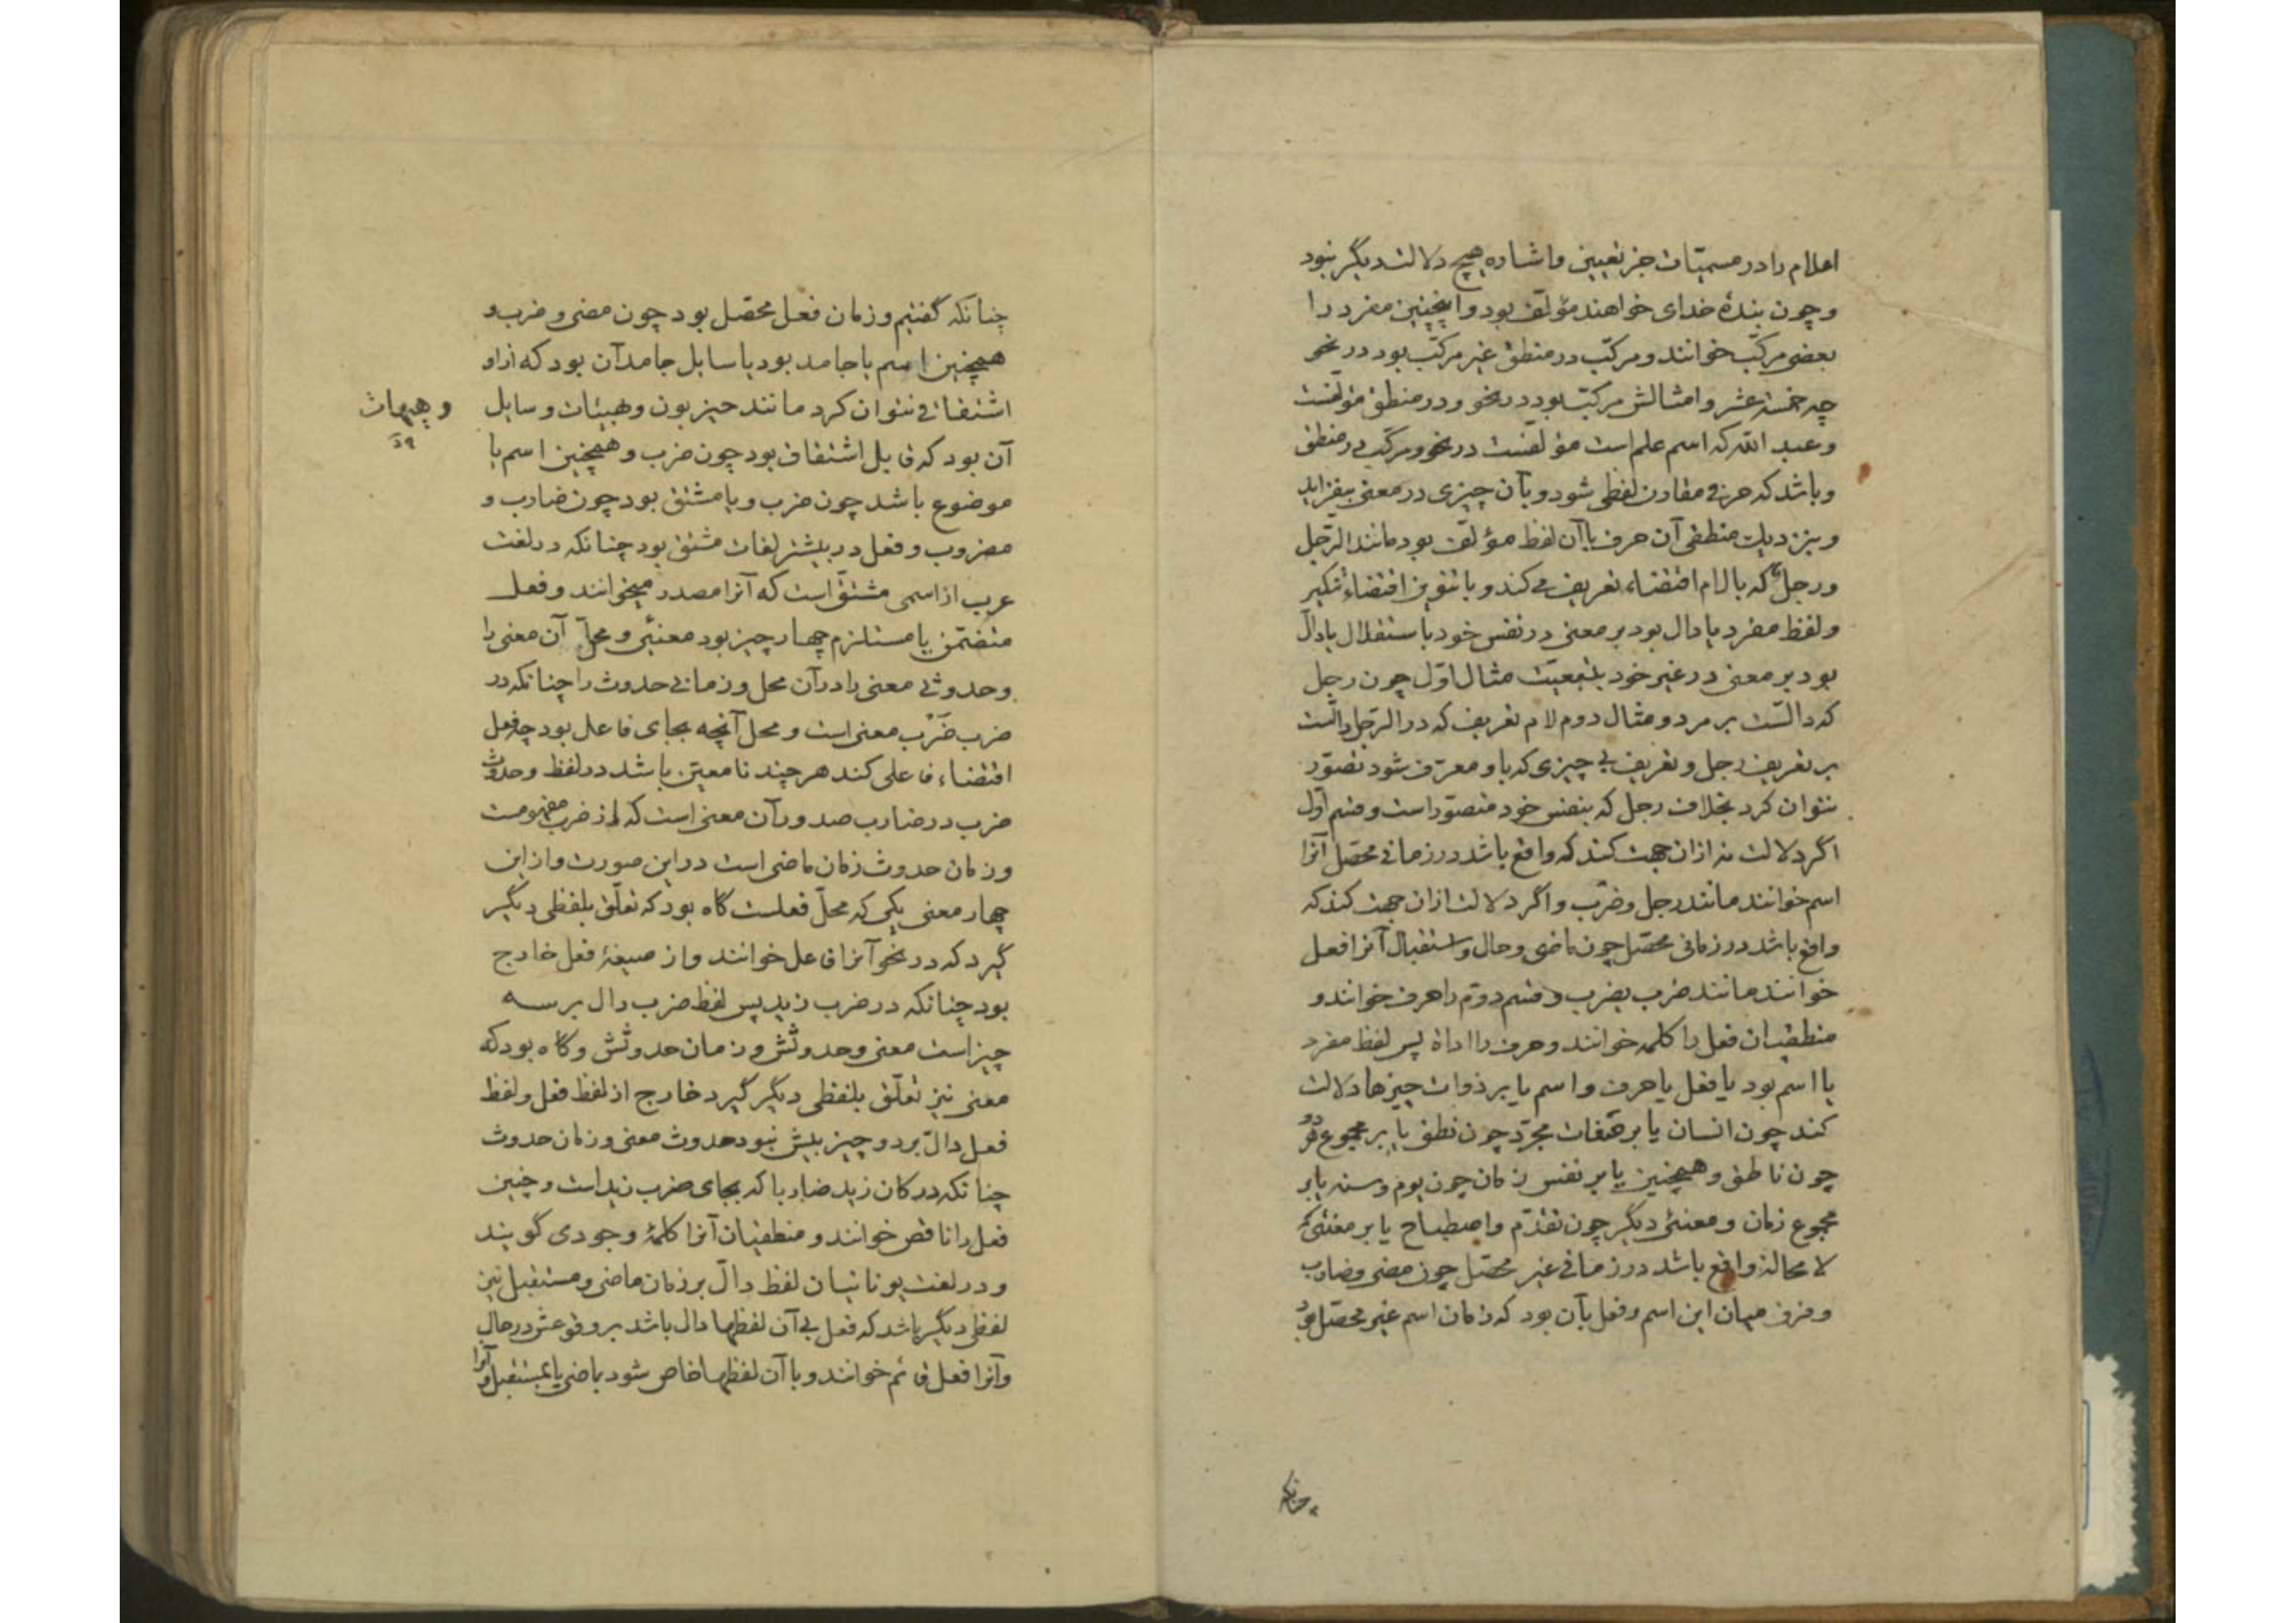 اعلام را در مسمیّات جز تعیین و اشاره هیچ دلالت دیگر نبود
و چون بندهٔ خدای خواهند مؤلّف بود و اینچنین مفرد را
بعضی مرکّب خوانند و مرکّب در منطق غیر مرکّب بود در نحو
چه خمسة عشر و امثالش مرکّبست بود در نحو و در منطق مؤلّفست
و عبد الله که اسم علم است مؤلّفست در نحو و مرکّب در منطق
و باشد که حرفی مقارن لفظی شود و بآن چیزی در معنی بیفزاید
و بنزدیک منطقی آن حرف با آن لفظ مؤلّف بود مانند الرّجل
و رجلٌ که با لام اقتضاء تعریف می کند و با تنوین اقتضاء تنکیر
و لفظ مفرد یا دال بود بر معنی در نفس خود باستقلال یا دالّ
بود بر معنی در غیر خود بتبعیّت مثال اوّل چون رجل
که دالّست بر مرد و مثال دوم لام تعریف که در الرّجل دالّست
بر تعریف رجل و تعریف بی چیزی که باو معرّف شود تصوّر
نتوان کرد بخلاف رجل که بنفس خود متصوّر است و قسم اوّل
اگر دلالت نه ازان جهت کند که واقع باشد در زمانی محصّل آنرا
اسم خوانند مانند رجل و ضرْب و اگر دلالت ازان جهت کند که
واقع باشد در زمانی محصّل چون ماضی و حال و استقبال آنرا فعل
خوانند مانند ضرب یضرب و قسم دوّم را حرف خوانند و
منطقیان فعل را کلمه خوانند و حرف را اداة پس لفظ مفرد
یا اسم بود یا فعل یا حرف و اسم یا بر ذوات چیزها دلالت
کند چون انسان یا بر صفات مجرّد چون نطق یا بر مجموع هر دو
چون ناطق و همچنین یا بر نفس زمان چون یوم و سنه یا بر
مجموع زمان و معنیٔ دیگر چون تقدّم و اصطباح یا بر معنیٔ که
لا محاله واقع باشد در زمانی غیر محصّل چون مضی و ضارب
و فرق میان این اسم و فعل بآن بود که زمان اسم غیر محصّل بود
چنانکه
چنانکه گفتیم و زمان فعل محصّل بود چون مضی و ضرب و
همچنین اسم یا جامد بود یا سایل جامد آن بود که ازاو
اشتقاقی نتوان کرد مانند حیزبون و هیئات و سایل
و هیهات
آن بود که قابل اشتقاق بود چون ضرب و همچنین اسم یا
موضوع باشد چون ضرب و یا مشتق بود چون ضارب و
مضروب و فعل در بیشتر لغات مشتق بود چنانکه در لغت
عرب از اسمی مشتقّ است که آنرا مصدر میخوانند و فعل
متضمّن یا مستلزم چهار چیز بود معنیٔ و محلّ آن معنی را
و حدوث معنی را در آن محل و زمانی حدوث را چنانکه در
ضرب ضَرْب معنی است و محل آنچه بجای فاعل بود چه فعل
اقتضاء فاعلی کند هر چند نا معیّن باشد در لفظ و حدوث
ضرب در ضارب صدور آن معنی است که از ضرب مفهومست
و زمان حدوث زمان ماضی است در این صورت و از این
چهار معنی یکی که محلّ فعلست گاه بود که تعلّق بلفظی دیگر
گیرد که در نحو آنرا فاعل خوانند و از صیغهٔ فعل خارج
بود چنانکه در ضرب زید پس لفظ ضرب دال بر سه
چیز است معنی و حدوثش و زمان حدوثش و گاه بود که
معنی نیز تعلّق بلفظی دیگر گیرد خارج از لفظ فعل و لفظ
فعل دالّ بر دو چیز بیش نبود حدوث معنی و زمان حدوث
چنانکه در کان زید ضاربا که بجای ضرب زید است و چنین
فعل را ناقص خوانند و منطقیان آنرا کلمهٔ وجودی گویند
و در لغت یونانیان لفظ دالّ بر زمان ماضی و مستقبل نیز
لفظی دیگر باشد که فعل بی آن لفظها دال باشد بر وقوعش در حال
و آنرا فعل قائم خوانند و با آن لفظها خاص شود بماضی یا بمستقبل و آنرا